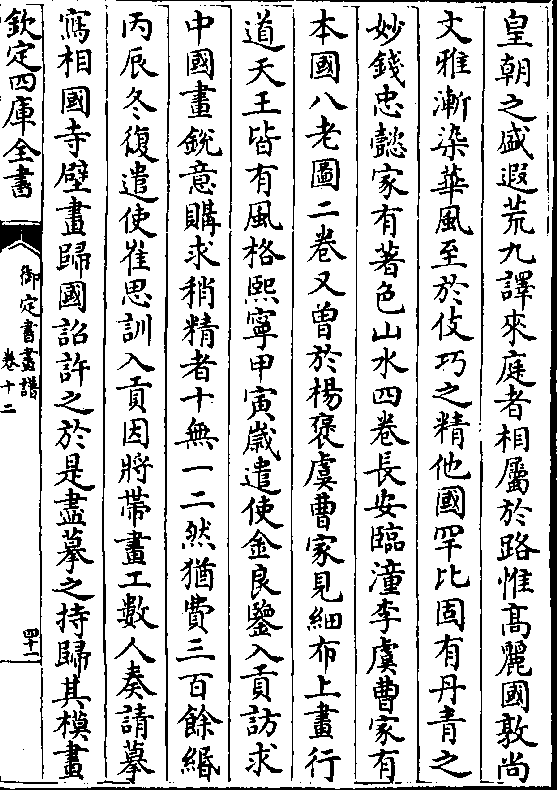 皇朝之盛遐荒九譯來庭者相屬於路惟髙麗國敦尚
文雅漸染華風至於伎巧之精他國罕比固有丹青之
妙錢忠懿家有著色山水四卷長安臨潼李虞曹家有
本國八老圖二卷又曾於楊褒虞曹家見細布上畫行
道天王皆有風格熙寧甲寅嵗遣使金良鑒入貢訪求
中國畫銳意購求稍精者十無一二然猶費三百餘緡
丙辰冬復遣使崔思訓入貢因將帶畫工數人奏請摹
寫相國寺壁畫歸國詔許之於是盡摹之持歸其模畫
欽定四庫全書
御定書畫譜
卷十二
四十